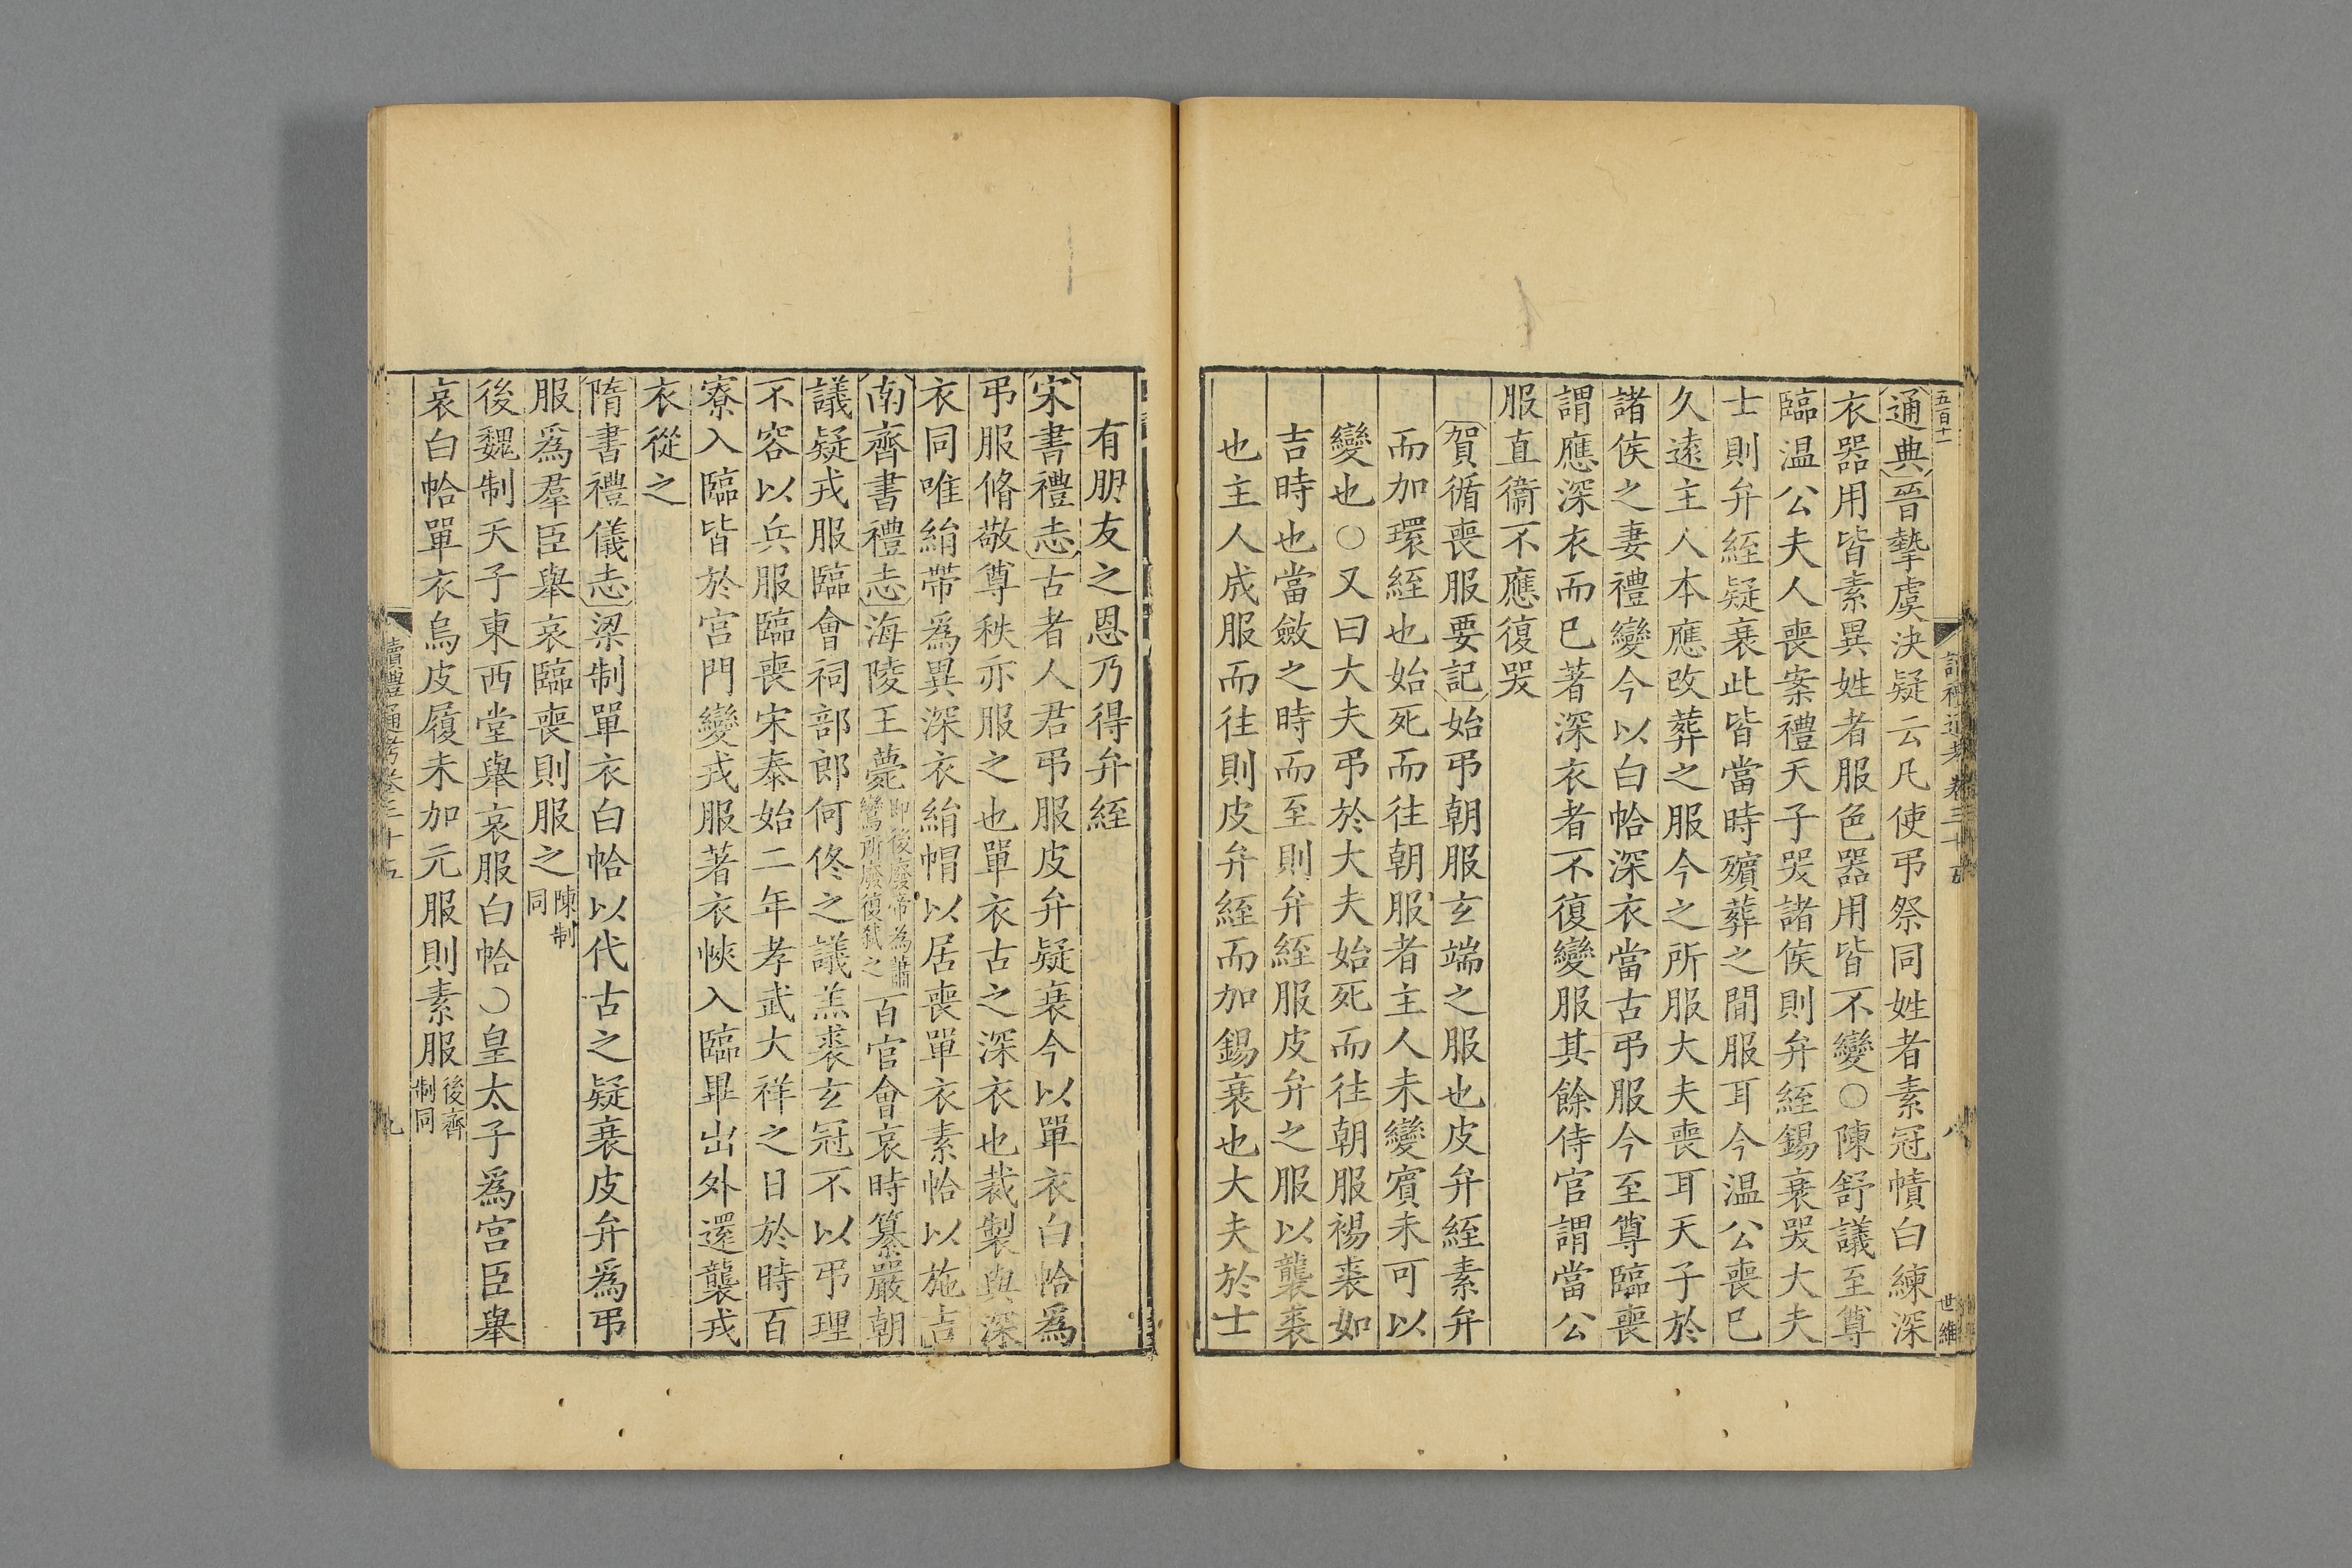 五百十一
讀禮通考卷三十五
八
世維
通典晉摯虞決疑云凡使弔祭同姓者素冠幘白練深
衣器用皆素異姓者服色器用皆不變○陳舒議至尊
臨温公夫人喪案禮天子哭諸侯則弁絰錫衰哭大夫
士則弁絰疑衰此皆當時殯葬之間服耳今温公喪已
久遠主人本應改葬之服今之所服大夫喪耳天子於
諸侯之妻禮變今以白帢深衣當古弔服今至尊臨喪
謂應深衣而已著深衣者不復變服其餘侍官謂當公
服直衞不應復哭
賀循喪服要記始弔朝服玄端之服也皮弁絰素弁
而加環絰也始死而往朝服者主人未變賓未可以
變也○又曰大夫弔於大夫始死而往朝服裼裘如
吉時也當斂之時而至則弁絰服皮弁之服以襲裘
也主人成服而往則皮弁絰而加錫衰也大夫於士
有朋友之恩乃得弁絰
宋書禮志古者人君弔服皮弁疑衰今以單衣白帢爲
弔服脩敬尊秩亦服之也單衣古之深衣也裁製與深
衣同唯絹帶爲異深衣絹帽以居喪單衣素帢以施吉
南齊書禮志海陵王薨即後廢帝為蕭鸞所廢復弑之百官會哀時纂嚴朝
議疑戎服臨會祠部郎何佟之議羔裘玄冠不以弔理
不容以兵服臨喪宋泰始二年孝武大祥之日於時百
寮入臨皆於宫門變戎服著衣㡊入臨畢出外還襲戎
衣從之
隋書禮儀志梁制單衣白帢以代古之疑衰皮弁爲弔
服爲羣臣舉哀臨喪則服之陳制同
後魏制天子東西堂舉哀服白帢○皇太子爲宫臣舉
哀白帢單衣烏皮履未加元服則素服後齊制同
讀禮通考卷三十五
九